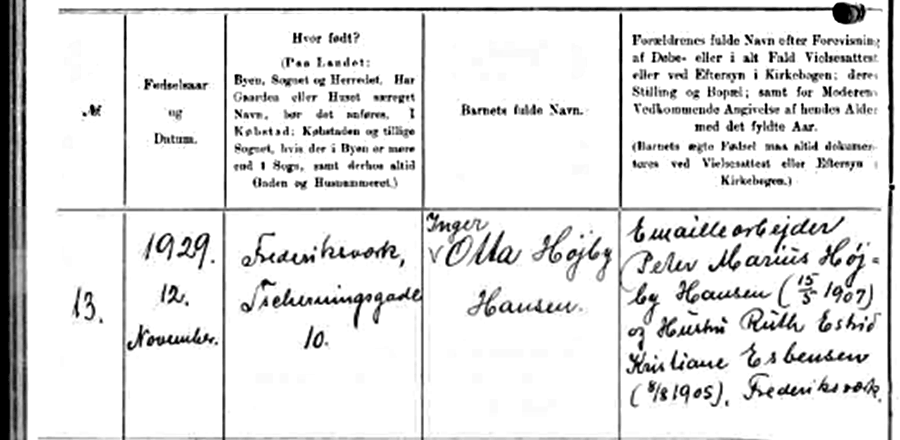 №
Fødselsaar
og
Datum.
Hvor født?
(Paa Landet:
Byen, Sognet og Herredet. Har
Gaarden eller Huset særeget
Navn, bør det anføres. I
Købstad: Købstaden og tillige
Sognet, hvis der i Byen er mere
end 1 Sogn, samt derhos altid
Gaden og Husnummeret.)
Barnets fulde Navn.
Forældrenes fulde Navn efter Forevisning
af Døbe- eller i alt Fald Vielsesattest
eller ved Eftersyn i Kirkebogen; deres
Stilling og Bopæl; samt for Moderens
Vedkommende Angivelse af hendes Alder
med det fyldte Aar.
(Barnets ægte Fødsel maa altid dokumen-
teres ved Vielsesattest eller Eftersyn i
Kirkebogen.)
13.
1929.
12.
November.
Frederiksværk,
Tscherningsgade
10.
Inger
√ Otta Højby
Hansen.
Emaillearbejder
Peter Marius Høj-
by Hansen (15/5 1907)
og Hustru Ruth Estrid
Kristiane Esbensen
(8/8 1905), Frederiksværk.